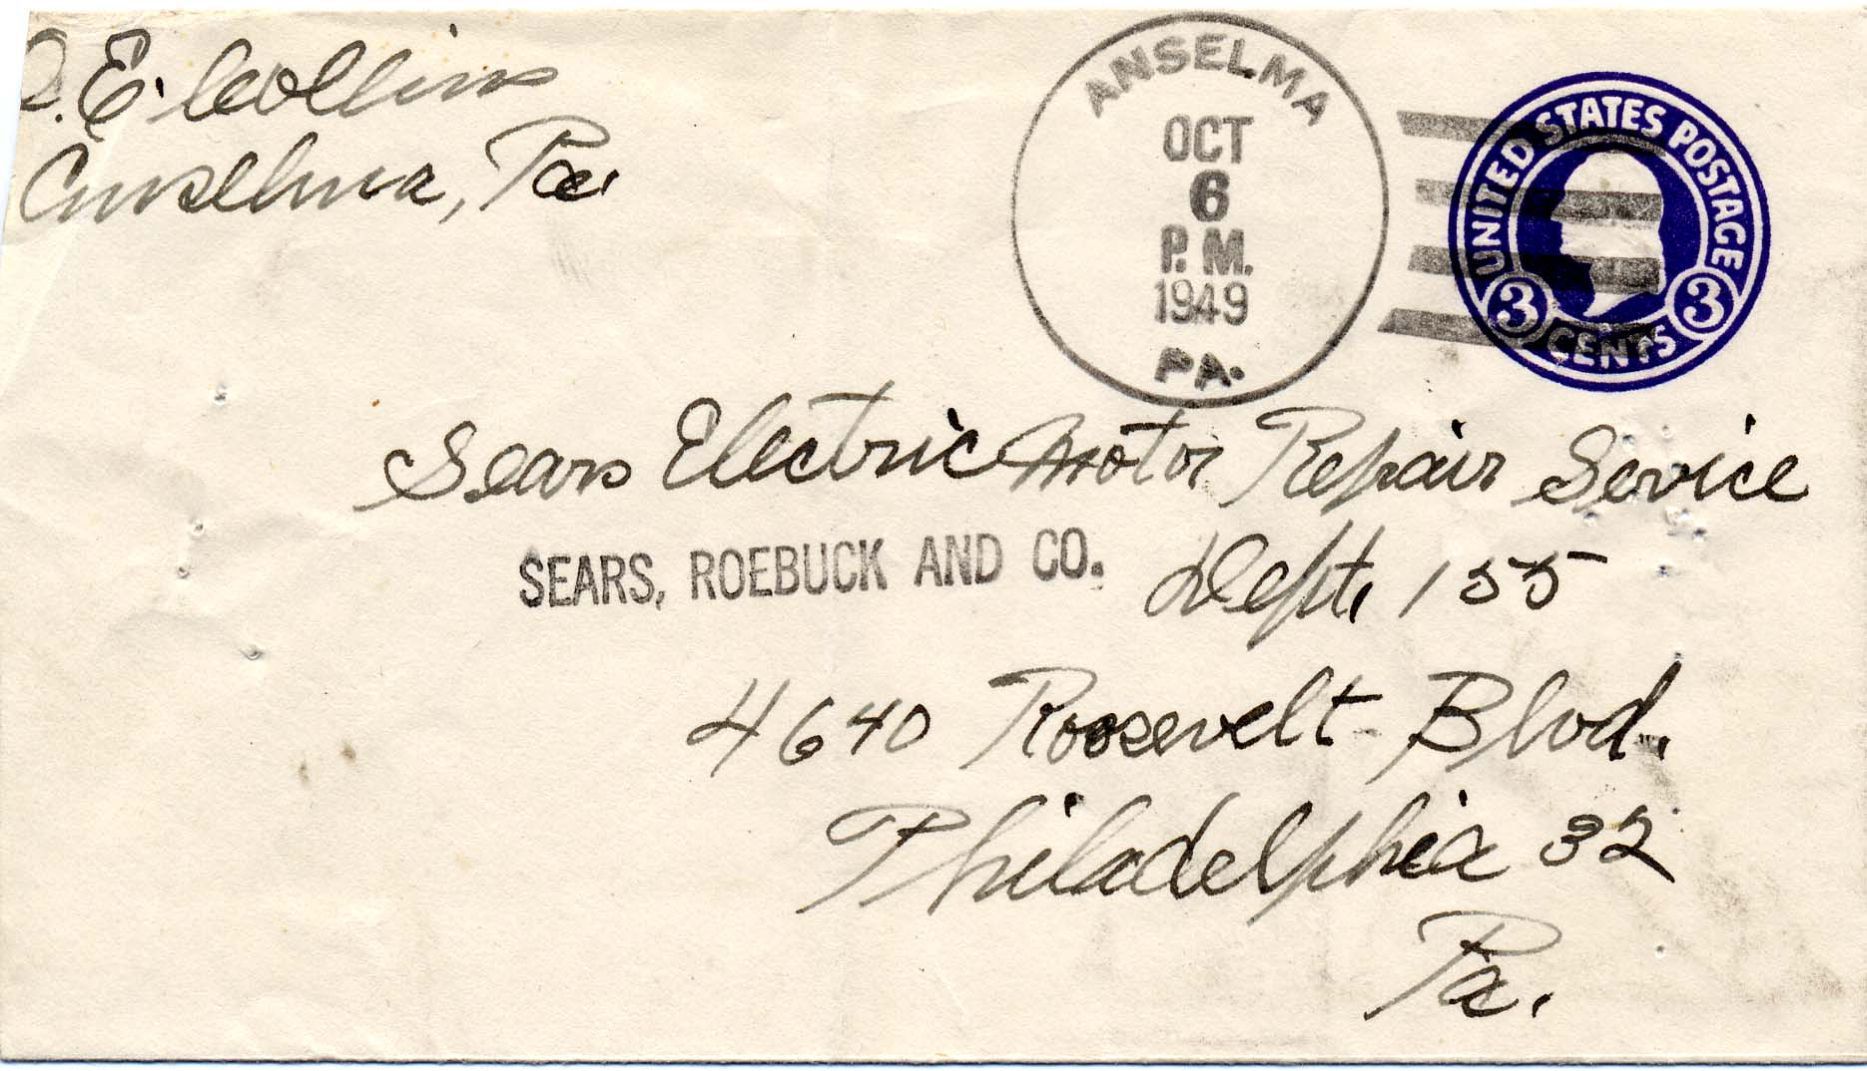 . E. Collins
Anselma, Pa.
ANSELMA
OCT
6
P. M.
1949
PA.
UNITED STATES POSTAGE
3 CENTS 3
Sears Electric Motor Repair Service
SEARS, ROEBUCK AND CO. Dept. 155
4640 Roosevelt Blvd.
Philadelphia 32
Pa.